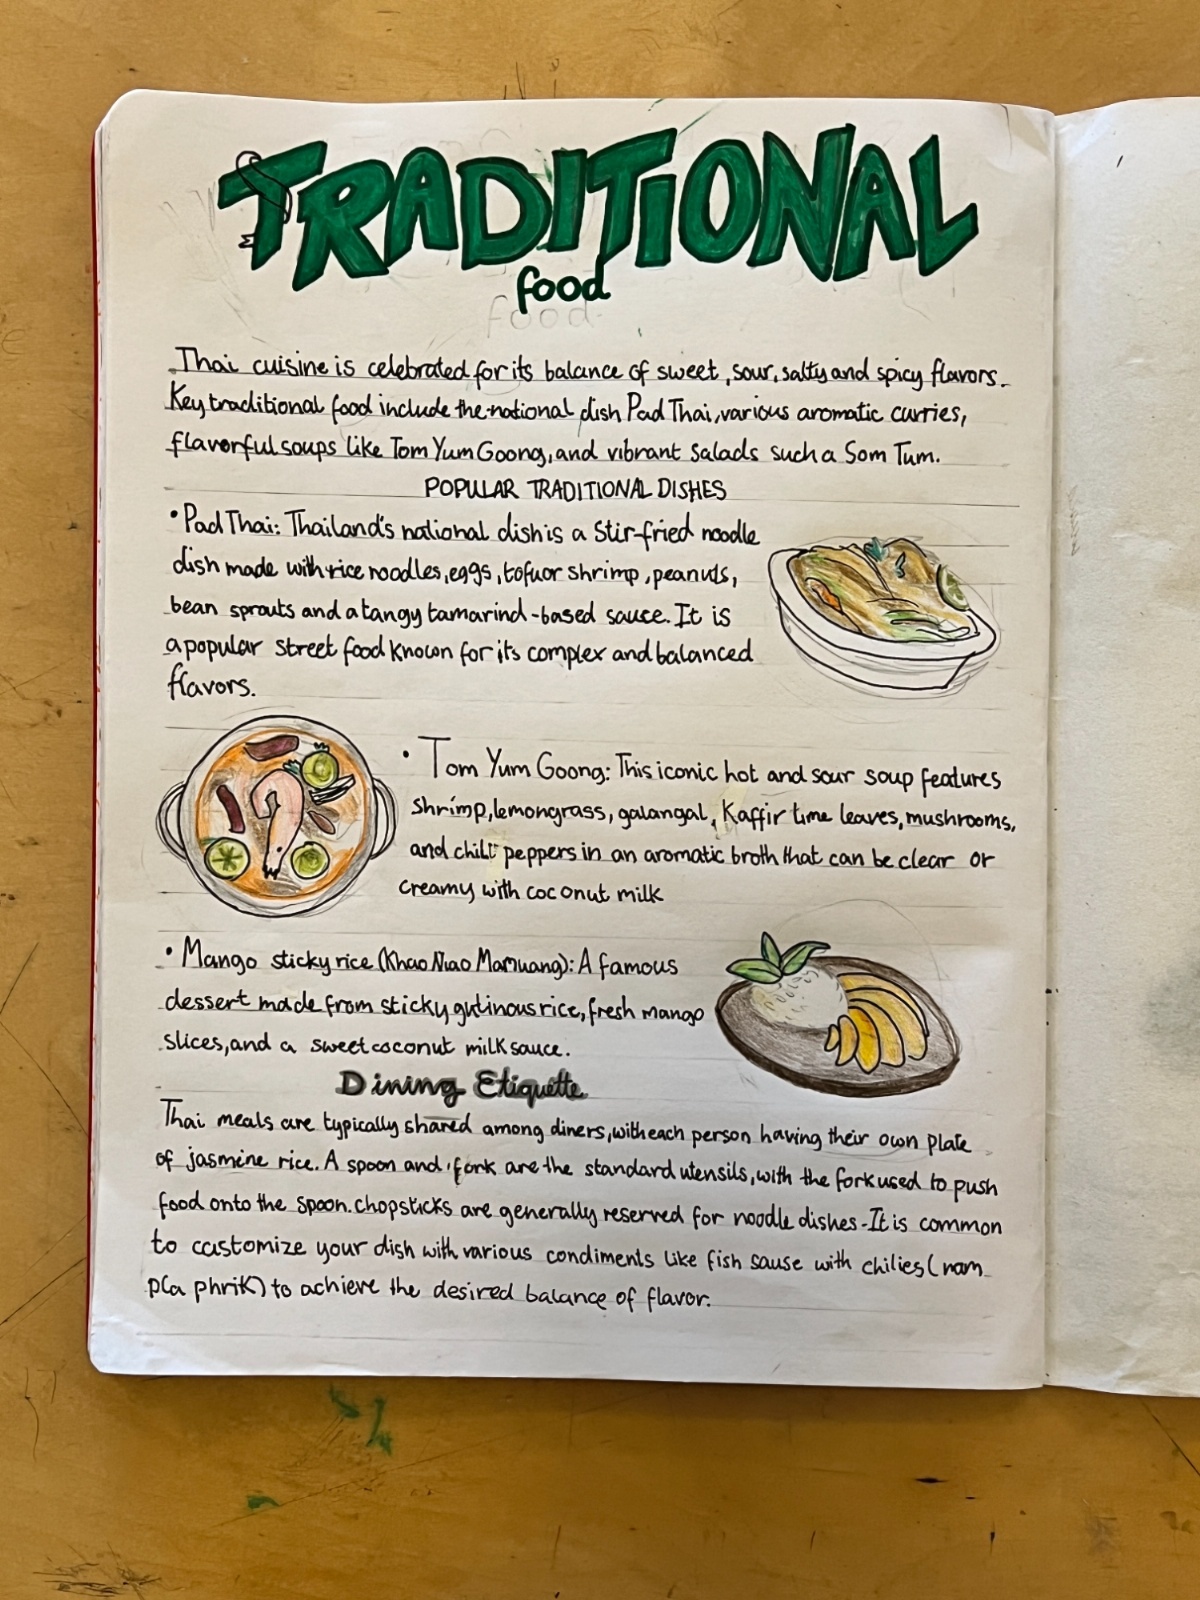 TRADITIONAL
food
food
Thai cuisine is celebrated for its balance of sweet, sour, salty and spicy flavors.
Key traditional food include the national dish Pad Thai, various aromatic curries,
flavorful soups like Tom Yum Goong, and vibrant salads such a Som Tum.
POPULAR TRADITIONAL DISHES
• Pad Thai: Thailand's national dish is a stir-fried noodle
dish made with rice noodles, eggs, tofu or shrimp, peanuts,
bean sprouts and a tangy tamarind-based sauce. It is
a popular street food known for its complex and balanced
flavors.
• Tom Yum Goong: This iconic hot and sour soup features
shrimp, lemongrass, galangal, Kaffir lime leaves, mushrooms,
and chili peppers in an aromatic broth that can be clear or
creamy with coconut milk
• Mango sticky rice (Khao Niao Mamuang): A famous
dessert made from sticky glutinous rice, fresh mango
slices, and a sweet coconut milk sauce.
Dining Etiquette
Thai meals are typically shared among diners, with each person having their own plate
of jasmine rice. A spoon and fork are the standard utensils, with the fork used to push
food onto the spoon. chopsticks are generally reserved for noodle dishes - It is common
to customize your dish with various condiments like fish sause with chilies (nam
pla phrik) to achieve the desired balance of flavor.